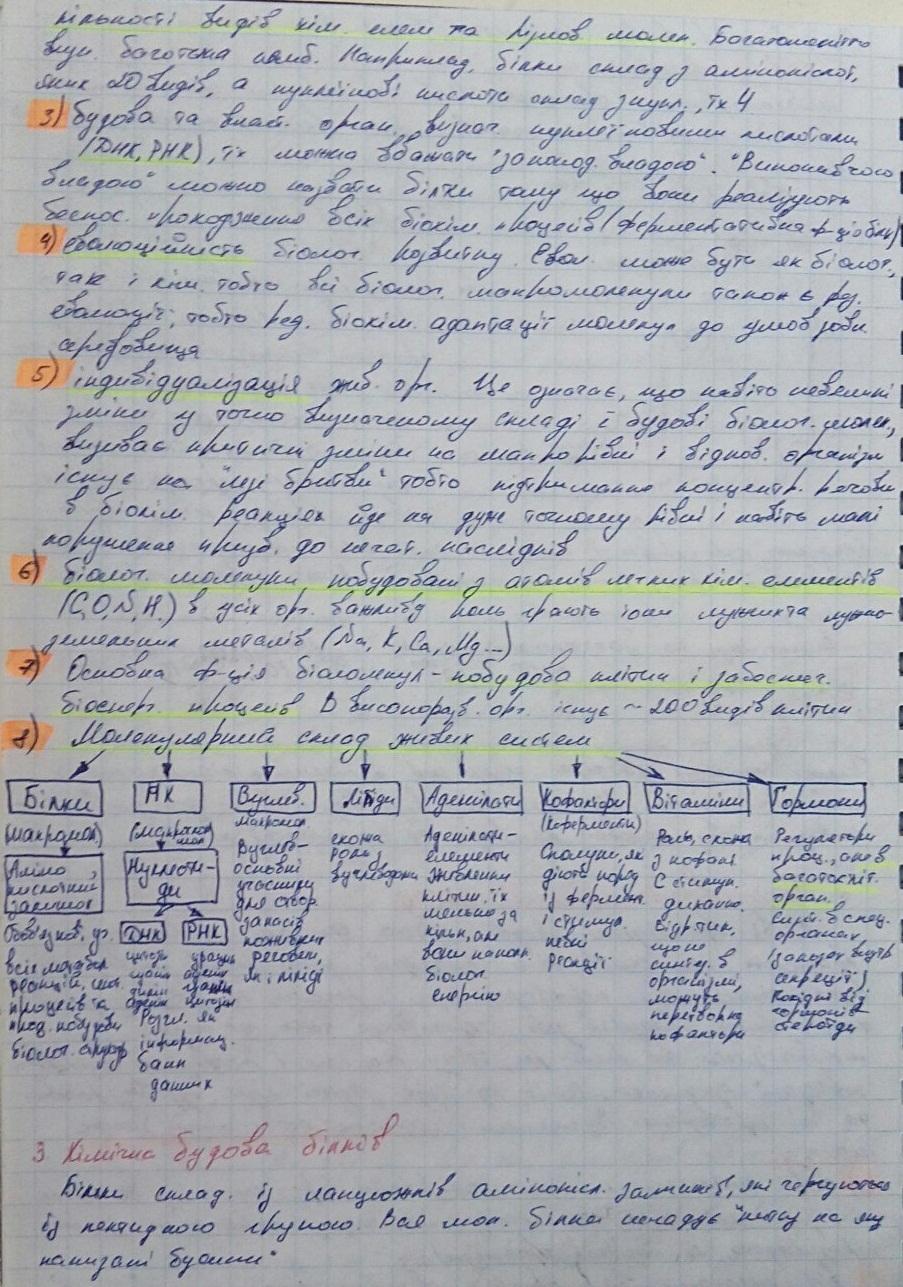 кількості видів хім. елем та їх молек. Багатоманітн
вун. багатома комб. Наприклад, білки склад з амінокислот,
яких 20 видів, а нуклеїнові кислоти склад з нукл., їх 4
3) Будова та власт. орган. визнач. нуклеїновими кислотами
(ДНК, РНК), їх можна вважати "законод. владою". "Виконавчою
владою" можна назвати білки тому що вони реалізують
безпос. проходження всіх біохім. процесів (ферментативна ф-ція білк.)
4) еволюційність біолог. розвитку. Евол. може бути як біолог.,
так і хім. тобто всі біолог. макромолекули також є рез.
еволюції, тобто рез. біохім. адаптації молекул до умов зовн.
середовища
5) індивідуалізація жив. орг. Це означає, що навіть невеликі
зміни у точно визначеному складі і будові біолог. молек,
визиває критичні зміни на макрорівні і віднов. організм
існує на "лезі бритви" тобто підтримання концентр. речови
в біохім. реакціях йде на дуже точному рівні і навіть малі
порушення призв. до негат. наслідків
6) біолог. молекули побудовані з атомів легких хім. елементів
(C, O, N, H.) в усіх орг. важливу роль грають іони лужних та лужно-
земельних металів (Na, K, Ca, Mg...)
7) Основна ф-ція біомолекул - побудова клітин і забезпеч.
біоенерг. процесів В високорозв. орг. існує ~ 200 видів клітин
8) Молекулярний склад живих систем
Білки НК Вуглев. Ліпіди Аденілати Кофактори Вітаміни Гормони
(макромол)
Аміно
кислотний
залишок
Обов'язков. уч.
всіх метабол
реакцій,
процесів та
прод. побудови
біолог. структур
(макромол)
Нуклеоти-
ди
ДНК РНК
цитозин урацил
гуанін аденін
тимін гуанін
аденін цитозин
Розгл. як
інформац.
банк
даних
макромол.
Вуглев-
основні
учасники
для створ.
запасів
поживних
речовин,
як і ліпіди
схожа
роль
вуглеводами
Аденілати-
елементи
живлення
клітин. їх
мельно за
кільк, але
вони накоп.
біолог.
енергію
(коферменти)
Сполуки, які
діють поряд
із фермент.
і стимул.
певні
реакції
Роль, схожа
з кофакт
Є стимул.
динамо.
Відрізн,
що не
синтез. в
організмі,
можуть
перетворюв
кофактори
Регулятори
проц., але в
багатокліт.
орган.
Синт. в спец.
органах
(залозах внутр
секреції)
Похідні від
гормонів
стероїди
3 Хімічна будова білків
Білки склад. із ланцюжків амінокисл. залишків, які чергуються
із пептидною групою. Вся мол. білка нагадує "нитку на яку
нанизані бусини"